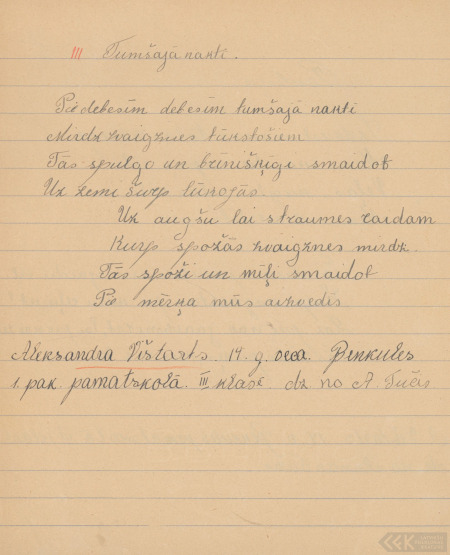 III Tumšajā naktī.
Pie debesīm debesīm tumšajā naktī
Mirdz zvaigznes tūkstošiem
Tās spulgo un brīnišķīgi smaidot
Uz zemi šurp lūkojās.
Uz augšu lai straumes raidam
Kurp spožās zvaigznes mirdz.
Tās spoži un mīļi smaidot
Pie mērķa mūs aizvedīs
Aleksandra Vītarts. 14. g. veca. Penkules
1. pak. pamatskolā. III klasē. dz no A.